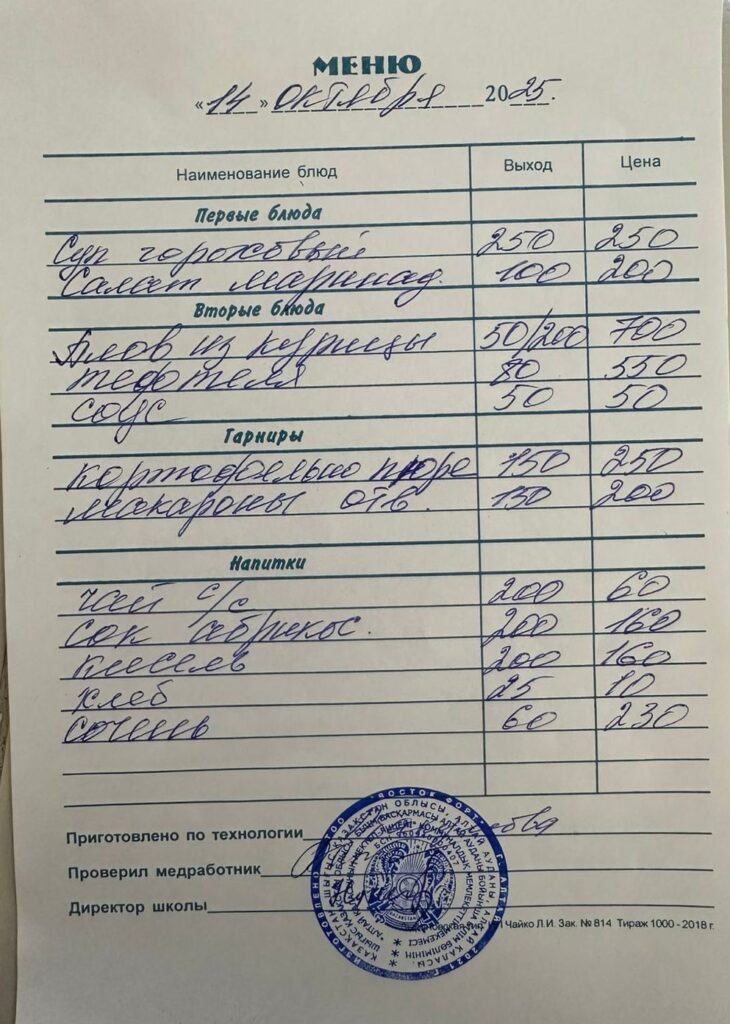 МЕНЮ
«14» октября 2025.
Наименование блюд Выход Цена
Первые блюда
Суп гороховый 250 250
Салат маринад. 100 200
Вторые блюда
Плов из курицы 50/200 700
тефтеля 80 550
соус 50 50
Гарниры
картофельно пюре 150 250
макароны отв. 150 200
Напитки
чай с/с 200 60
сок абрикос. 200 160
кисель 200 160
хлеб 25 10
сочень 60 230
Приготовлено по технологии
Проверил медработник
Директор школы
Чайко Л.И. Зак. № 814 Тираж 1000 - 2018 г.